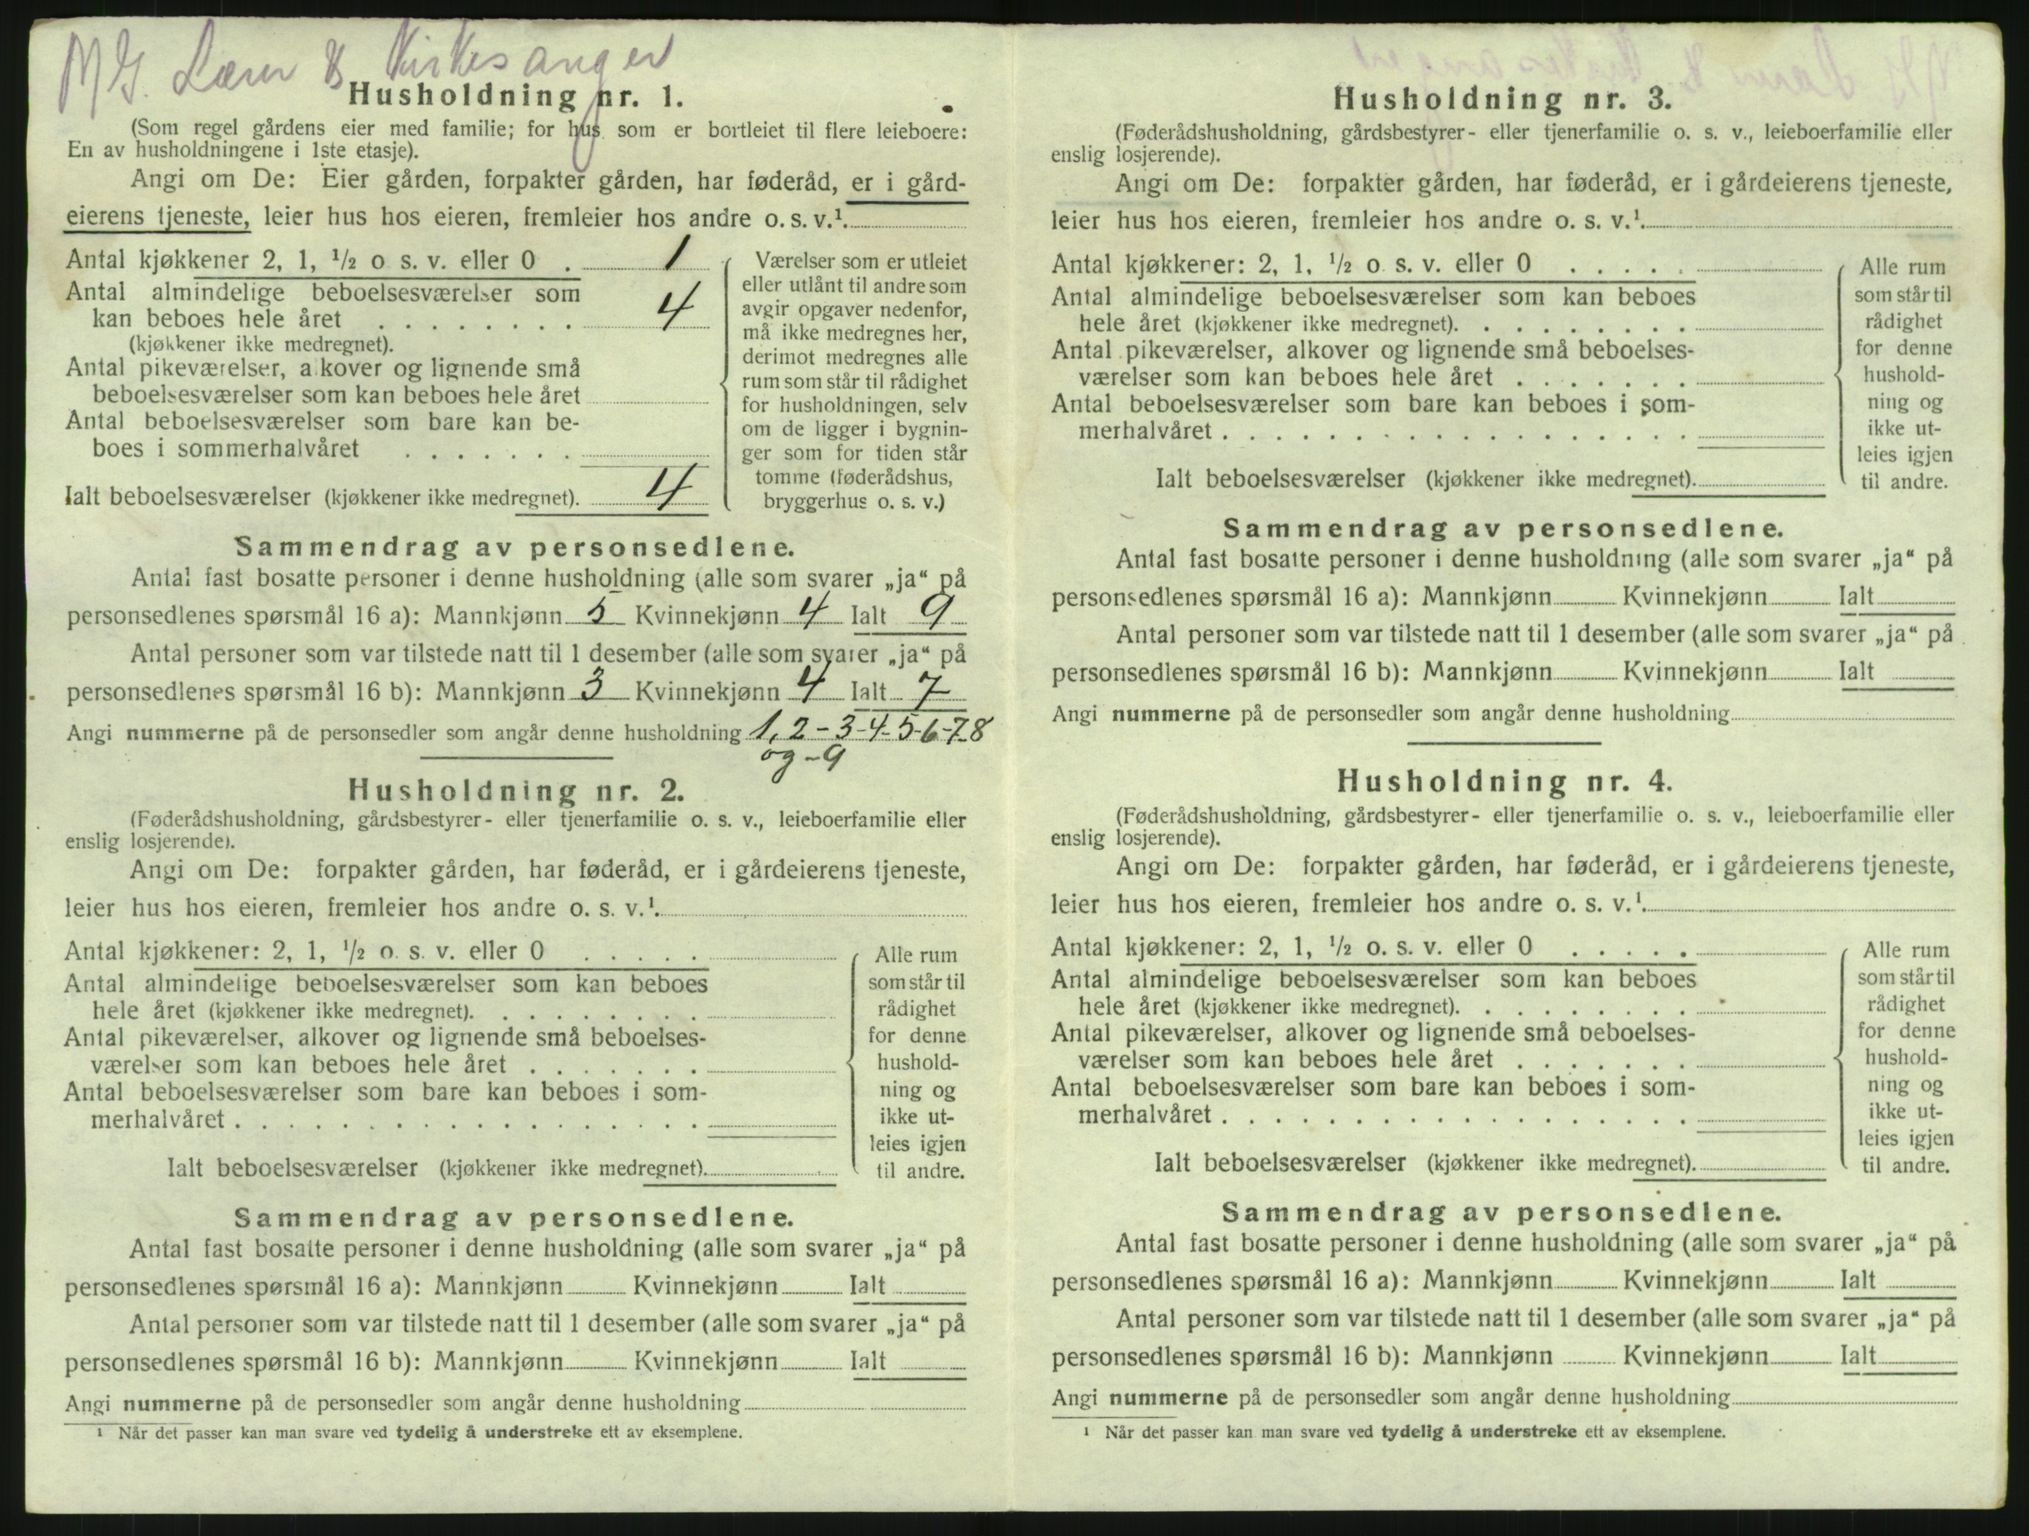 M G. Lærer & Kirkesanger
Husholdning nr. 1.
(Som regel gårdens eier med familie; for hus som er bortleiet til flere leieboere:
En av husholdningene i 1ste etasje).
Angi om De: Eier gården, forpakter gården, har føderåd, er i gård-
eierens tjeneste, leier hus hos eieren, fremleier hos andre o. s. v.¹
Antal kjøkkener 2, 1, ½ o s. v. eller 0 . 1
Antal almindelige beboelsesværelser som
kan beboes hele året . . . . . . . . 4
(kjøkkener ikke medregnet).
Antal pikeværelser, alkover og lignende små
beboelsesværelser som kan beboes hele året
Antal beboelsesværelser som bare kan be-
boes i sommerhalvåret . . . . . . .
Ialt beboelsesværelser (kjøkkener ikke medregnet). 4
Værelser som er utleiet
eller utlånt til andre som
avgir opgaver nedenfor,
må ikke medregnes her,
derimot medregnes alle
rum som står til rådighet
for husholdningen, selv
om de ligger i bygnin-
ger som for tiden står
tomme (føderådshus,
bryggerhus o. s. v.)
Sammendrag av personsedlene.
Antal fast bosatte personer i denne husholdning (alle som svarer „ja“ på
personsedlenes spørsmål 16 a): Mannkjønn 5 Kvinnekjønn 4 Ialt 9
Antal personer som var tilstede natt til 1 desember (alle som svarer „ja“ på
personsedlenes spørsmål 16 b): Mannkjønn 3 Kvinnekjønn 4 Ialt 7
Angi nummerne på de personsedler som angår denne husholdning 1, 2 - 3 - 4 - 5 - 6 - 7 - 8
og - 9
Husholdning nr. 2.
(Føderådshusholdning, gårdsbestyrer- eller tjenerfamilie o. s. v., leieboerfamilie eller
enslig losjerende).
Angi om De: forpakter gården, har føderåd, er i gårdeierens tjeneste,
leier hus hos eieren, fremleier hos andre o. s. v.¹
Antal kjøkkener: 2, 1, ½ o. s. v. eller 0 . . . . .
Antal almindelige beboelsesværelser som kan beboes
hele året (kjøkkener ikke medregnet). . . . . . . . .
Antal pikeværelser, alkover og lignende små beboelses-
værelser som kan beboes hele året . . . . . . .
Antal beboelsesværelser som bare kan beboes i som-
merhalvåret . . . . . . . . . . . . . . . . . .
Ialt beboelsesværelser (kjøkkener ikke medregnet)
Alle rum
som står til
rådighet
for denne
hushold-
ning og
ikke ut-
leies igjen
til andre.
Sammendrag av personsedlene.
Antal fast bosatte personer i denne husholdning (alle som svarer „ja“ på
personsedlenes spørsmål 16 a): Mannkjønn Kvinnekjønn Ialt
Antal personer som var tilstede natt til 1 desember (alle som svarer „ja“ på
personsedlenes spørsmål 16 b): Mannkjønn Kvinnekjønn Ialt
Angi nummerne på de personsedler som angår denne husholdning
¹ Når det passer kan man svare ved tydelig å understreke ett av eksemplene.
Husholdning nr. 3.
(Føderådshusholdning, gårdsbestyrer- eller tjenerfamilie o. s. v., leieboerfamilie eller
enslig losjerende).
Angi om De: forpakter gården, har føderåd, er i gårdeierens tjeneste,
leier hus hos eieren, fremleier hos andre o. s. v.¹
Antal kjøkkener: 2, 1, ½ o. s. v. eller 0 . . . . .
Antal almindelige beboelsesværelser som kan beboes
hele året (kjøkkener ikke medregnet). . . . . . . . .
Antal pikeværelser, alkover og lignende små beboelses-
værelser som kan beboes hele året . . . . . . .
Antal beboelsesværelser som bare kan beboes i som-
merhalvåret . . . . . . . . . . . . . . . . . .
Ialt beboelsesværelser (kjøkkener ikke medregnet).
Alle rum
som står til
rådighet
for denne
hushold-
ning og
ikke ut-
leies igjen
til andre.
Sammendrag av personsedlene.
Antal fast bosatte personer i denne husholdning (alle som svarer „ja“ på
personsedlenes spørsmål 16 a): Mannkjønn Kvinnekjønn Ialt
Antal personer som var tilstede natt til 1 desember (alle som svarer „ja“ på
personsedlenes spørsmål 16 b): Mannkjønn Kvinnekjønn Ialt
Angi nummerne på de personsedler som angår denne husholdning
Husholdning nr. 4.
(Føderådshusholdning, gårdsbestyrer- eller tjenerfamilie o. s. v., leieboerfamilie eller
enslig losjerende).
Angi om De: forpakter gården, har føderåd, er i gårdeierens tjeneste,
leier hus hos eieren, fremleier hos andre o. s. v.¹
Antal kjøkkener: 2, 1, ½ o. s. v. eller 0 . . . . .
Antal almindelige beboelsesværelser som kan beboes
hele året (kjøkkener ikke medregnet). . . . . . . . .
Antal pikeværelser, alkover og lignende små beboelses-
værelser som kan beboes hele året . . . . . . .
Antal beboelsesværelser som bare kan beboes i som-
merhalvåret . . . . . . . . . . . . . . . . . .
Ialt beboelsesværelser (kjøkkener ikke medregnet).
Alle rum
som står til
rådighet
for denne
hushold-
ning og
ikke ut-
leies igjen
til andre.
Sammendrag av personsedlene.
Antal fast bosatte personer i denne husholdning (alle som svarer „ja“ på
personsedlenes spørsmål 16 a): Mannkjønn Kvinnekjønn Ialt
Antal personer som var tilstede natt til 1 desember (alle som svarer „ja“ på
personsedlenes spørsmål 16 b): Mannkjønn Kvinnekjønn Ialt
Angi nummerne på de personsedler som angår denne husholdning
¹ Når det passer kan man svare ved tydelig å understreke ett av eksemplene.